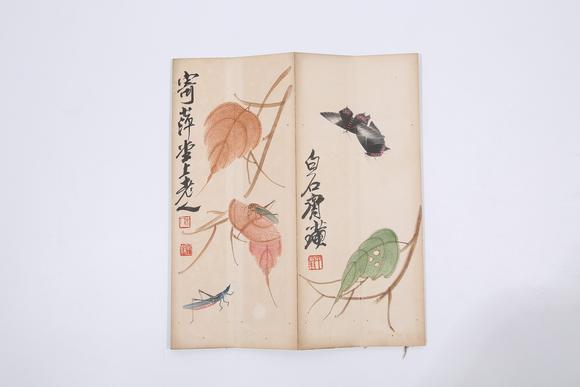 白石齊璜
寄萍堂上老人